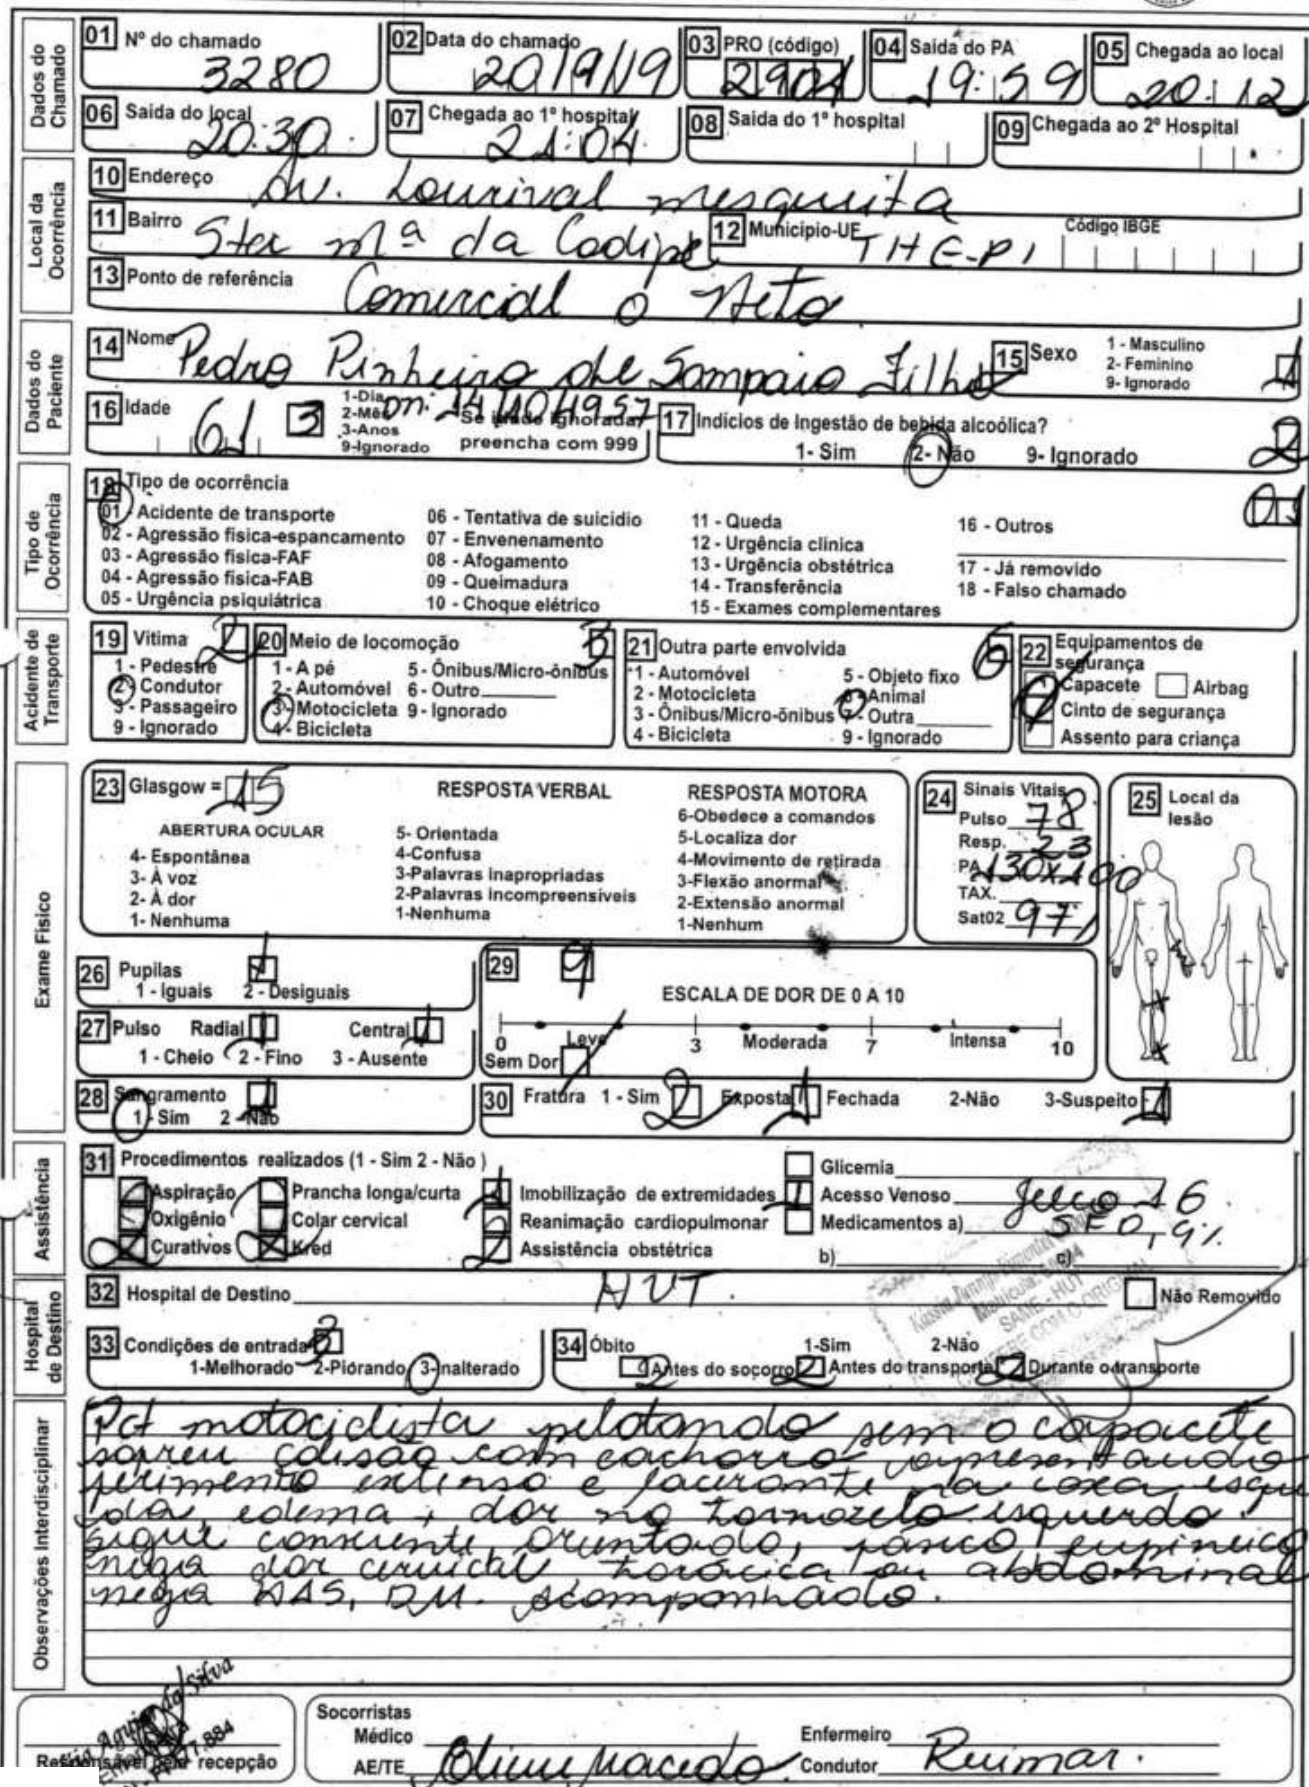 Dados do Chamado
01 Nº do chamado 3280
02 Data do chamado 20/9/19
03 PRO (código)
04 Saida do PA 19:59
05 Chegada ao local 20:12
06 Saida do local 20:30
07 Chegada ao 1º hospital 21:04
08 Saida do 1º hospital
09 Chegada ao 2º Hospital
Local da Ocorrência
10 Endereço Av. Lourival mesquita
11 Bairro Sta Mª da Codipi
12 Municipio-UF THE-PI
Código IBGE
13 Ponto de referência Comercial o Neto
Dados do Paciente
14 Nome Pedro Pinheiro de Sampaio Filho
15 Sexo 1 - Masculino 2- Feminino 9- Ignorado 1
16 Idade 61 3
1-Dia 2-Mês 3-Anos 9-Ignorado
Dn: 14/10/1957
Se idade ignorada, preencha com 999
17 Indícios de Ingestão de bebida alcoólica?
1- Sim 2- Não 9- Ignorado 2
Tipo de Ocorrência
18 Tipo de ocorrência 01
01 - Acidente de transporte
02 - Agressão física-espancamento
03 - Agressão física-FAF
04 - Agressão física-FAB
05 - Urgência psiquiátrica
06 - Tentativa de suicidio
07 - Envenenamento
08 - Afogamento
09 - Queimadura
10 - Choque elétrico
11 - Queda
12 - Urgência clínica
13 - Urgência obstétrica
14 - Transferência
15 - Exames complementares
16 - Outros
17 - Já removido
18 - Falso chamado
Acidente de Transporte
19 Vítima 2
1 - Pedestre
2 - Condutor
3 - Passageiro
9 - Ignorado
20 Meio de locomoção 3
1 - A pé
2 - Automóvel
3 - Motocicleta
4 - Bicicleta
5 - Ônibus/Micro-ônibus
6 - Outro
9 - Ignorado
21 Outra parte envolvida 6
1 - Automóvel
2 - Motocicleta
3 - Ônibus/Micro-ônibus
4 - Bicicleta
5 - Objeto fixo
6 - Animal
7 - Outra
9 - Ignorado
22 Equipamentos de segurança
Capacete Airbag
Cinto de segurança
Assento para criança
Exame Fisico
23 Glasgow = 15
ABERTURA OCULAR
4- Espontânea
3- À voz
2- À dor
1- Nenhuma
RESPOSTA VERBAL
5- Orientada
4-Confusa
3-Palavras Inapropriadas
2-Palavras incompreensíveis
1-Nenhuma
RESPOSTA MOTORA
6-Obedece a comandos
5-Localiza dor
4-Movimento de retirada
3-Flexão anormal
2-Extensão anormal
1-Nenhum
24 Sinais Vitais
Pulso 78
Resp. 23
PA 130x100
TAX.
Sat02 97%
25 Local da lesão
26 Pupilas 1
1 - Iguais 2 - Desiguais
27 Pulso Radial 1 Central 1
1 - Cheio 2 - Fino 3 - Ausente
28 Sangramento 1
1 - Sim 2 - Não
29
ESCALA DE DOR DE 0 A 10
0 Leve 3 Moderada 7 Intensa 10
Sem Dor
30 Fratura 1 - Sim 2 Exposta 1 Fechada 2-Não 3-Suspeito 1
Assistência
31 Procedimentos realizados (1 - Sim 2 - Não )
Aspiração
Oxigênio
Curativos
Prancha longa/curta
Colar cervical
Kred
Imobilização de extremidades
Reanimação cardiopulmonar
Assistência obstétrica
Glicemia
Acesso Venoso Jelco 16
Medicamentos a) SF 0,9%
b)
c)
Hospital de Destino
32 Hospital de Destino HUT.
Não Removido
33 Condições de entrada 3
1-Melhorado 2-Piorando 3-Inalterado
34 Óbito 1-Sim 2-Não
2 Antes do socorro 2 Antes do transporte 2 Durante o transporte
SAME - HUT
CONFERE COM O ORIGINAL
Observações Interdisciplinar
Pct motociclista pilotando sem o capacete
sofreu colisão com cachorro apresentando
ferimento extenso e lacerante na coxa esquer
da, edema + dor no tornozelo esquerdo.
segue consciente, orientado, eupneico
nega dor cervical, torácica ou abdominal
nega HAS, DM. acompanhado.
Aguiar da Silva
Responsável pela recepção
Socorristas
Médico
Enfermeiro
AE/TE Macedo
Condutor Ruimar.